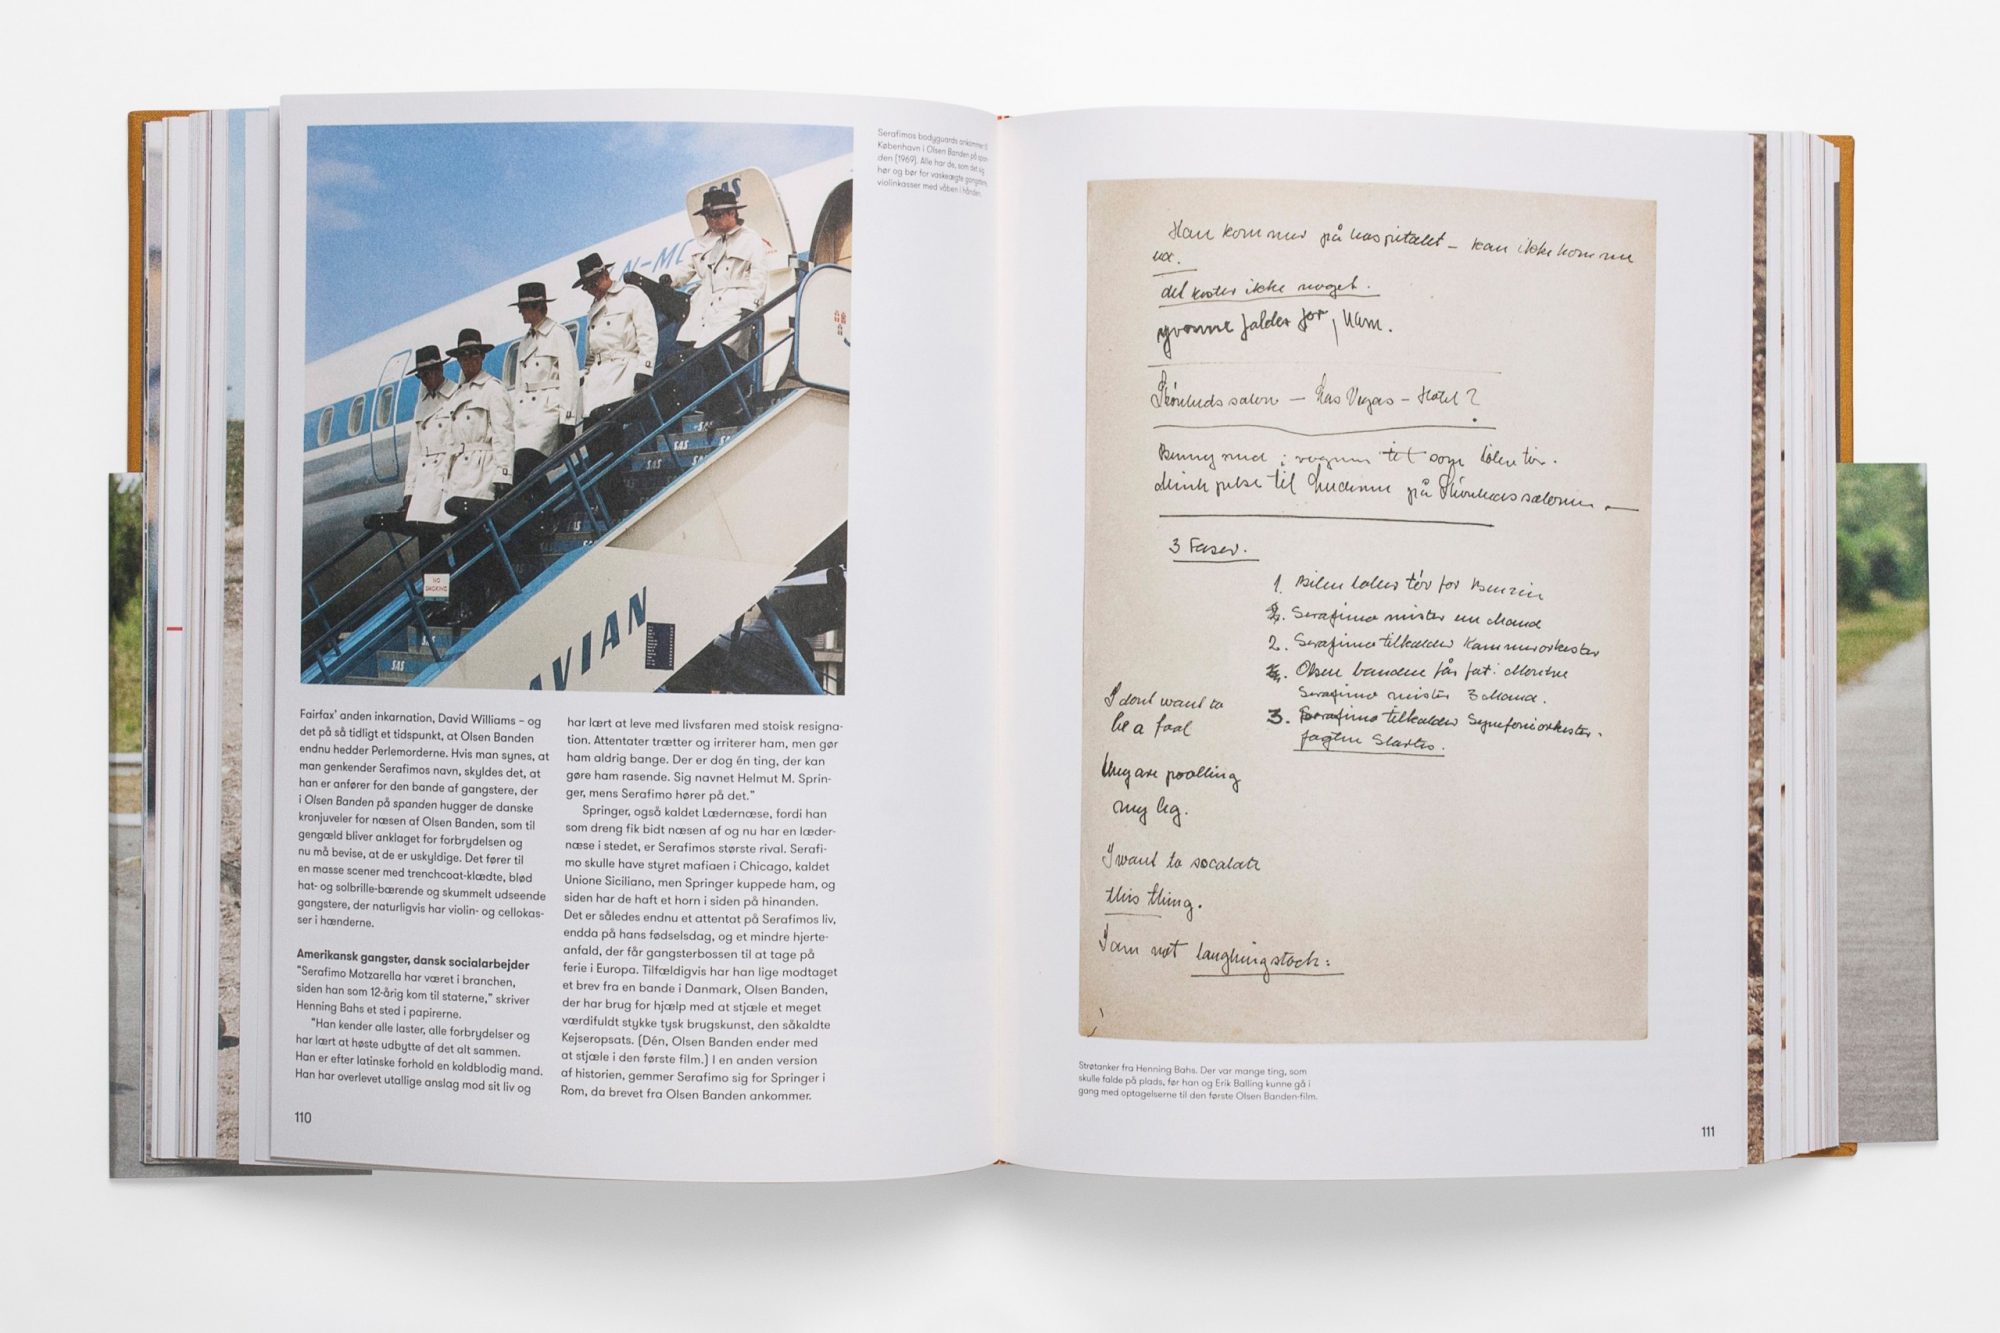 SAS
NO
SMOKING
SAS
SAS
SAS
SAS
AVIAN
Serafimos bodyguards ankommer til
København i Olsen Banden på span-
den (1969). Alle har de, som det sig
hør og bør for vaskeægte gangstere,
violinkasser med våben i hånden.
Fairfax’ anden inkarnation, David Williams – og
det på så tidligt et tidspunkt, at Olsen Banden
endnu hedder Perlemorderne. Hvis man synes, at
man genkender Serafimos navn, skyldes det, at
han er anfører for den bande af gangstere, der
i Olsen Banden på spanden hugger de danske
kronjuveler for næsen af Olsen Banden, som til
gengæld bliver anklaget for forbrydelsen og
nu må bevise, at de er uskyldige. Det fører til
en masse scener med trenchcoat-klædte, blød
hat- og solbrille-bærende og skummelt udseende
gangstere, der naturligvis har violin- og cellokas-
ser i hænderne.
Amerikansk gangster, dansk socialarbejder
”Serafimo Motzarella har været i branchen,
siden han som 12-årig kom til staterne,” skriver
Henning Bahs et sted i papirerne.
”Han kender alle laster, alle forbrydelser og
har lært at høste udbytte af det alt sammen.
Han er efter latinske forhold en koldblodig mand.
Han har overlevet utallige anslag mod sit liv og
har lært at leve med livsfaren med stoisk resigna-
tion. Attentater trætter og irriterer ham, men gør
ham aldrig bange. Der er dog én ting, der kan
gøre ham rasende. Sig navnet Helmut M. Sprin-
ger, mens Serafimo hører på det.”
Springer, også kaldet Lædernæse, fordi han
som dreng fik bidt næsen af og nu har en læder-
næse i stedet, er Serafimos største rival. Serafi-
mo skulle have styret mafiaen i Chicago, kaldet
Unione Siciliano, men Springer kuppede ham, og
siden har de haft et horn i siden på hinanden.
Det er således endnu et attentat på Serafimos liv,
endda på hans fødselsdag, og et mindre hjerte-
anfald, der får gangsterbossen til at tage på
ferie i Europa. Tilfældigvis har han lige modtaget
et brev fra en bande i Danmark, Olsen Banden,
der har brug for hjælp med at stjæle et meget
værdifuldt stykke tysk brugskunst, den såkaldte
Kejseropsats. (Dén, Olsen Banden ender med
at stjæle i den første film.) I en anden version
af historien, gemmer Serafimo sig for Springer i
Rom, da brevet fra Olsen Banden ankommer.
110
Han kommer på hospitalet – kan ikke komme
ud.
det koster ikke noget.
Yvonne falder for, ham.
Skønhedssalon – Las Vegas – Hotel?
Benny med i vognen til som løber tør.
Mink pelse til kunderne på Skønhedssalonen –
3 Faser.
1. Bilen løber tør for Benzin
2. Serafimo mister en Mand
2. Serafimo tilkalder Kammerorkester
Olsen banden får fat i Mønten
Serafimo mister 3 Mand.
3. Serafimo tilkalder Symfoniorkester.
Jagten Starter.
I dont want to
be a fool
They are poolling
my leg.
I want to socalate
this thing.
I am not laughingstock:
Strøtanker fra Henning Bahs. Der var mange ting, som
skulle falde på plads, før han og Erik Balling kunne gå i
gang med optagelserne til den første Olsen Banden-film.
111